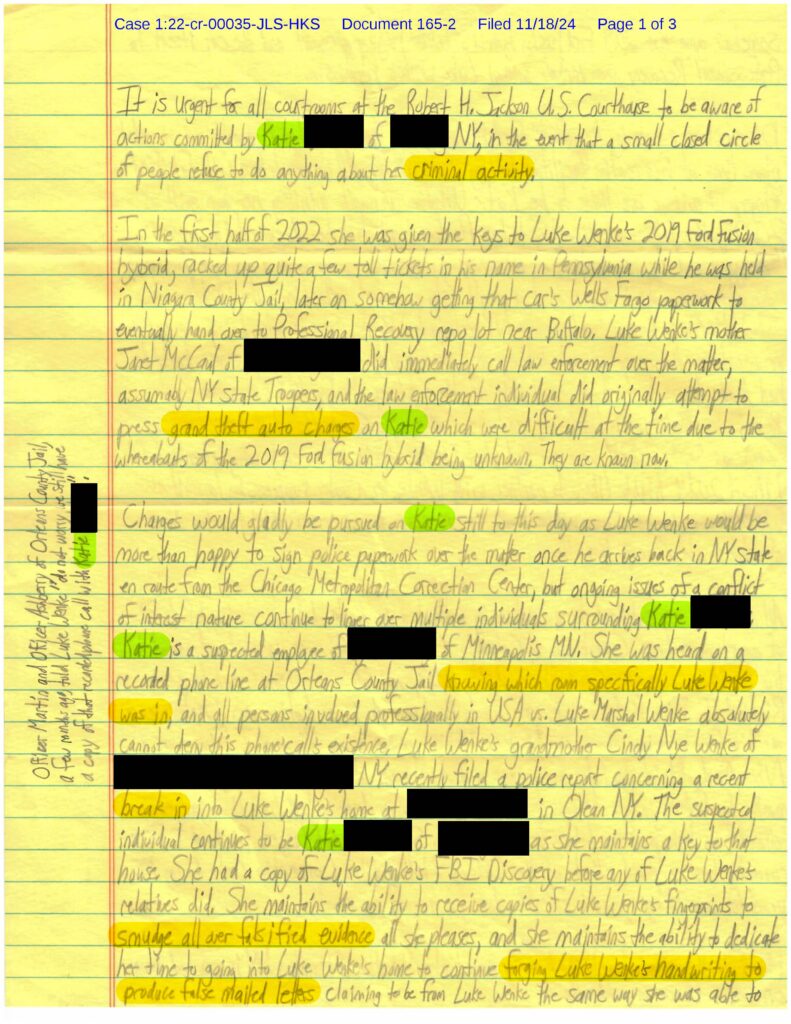 Case 1:22-cr-00035-JLS-HKS Document 165-2 Filed 11/18/24 Page 1 of 3
It is urgent for all courtrooms at the Robert H. Jackson U.S. Courthouse to be aware of
actions committed by Katie of NY, in the event that a small closed circle
of people refuse to do anything about her criminal activity.
In the first half of 2022 she was given the keys to Luke Wenke's 2019 Ford Fusion
hybrid, racked up quite a few toll tickets in his name in Pennsylvania while he was held
in Niagara County Jail, later on somehow getting that car's Wells Fargo paperwork to
eventually hand over to Professional Recovery repo lot near Buffalo. Luke Wenke's mother
Janet McCaul of did immediately call law enforcement over the matter,
assumably NY State Troopers, and the law enforcement individual did originally attempt to
press grand theft auto charges on Katie which were difficult at the time due to the
whereabouts of the 2019 Ford Fusion hybrid being unknown. They are known now.
Charges would gladly be pursued on Katie still to this day as Luke Wenke would be
more than happy to sign police paperwork over the matter once he arrives back in NY state
en route from the Chicago Metropolitan Correction Center, but ongoing issues of a conflict
of interest nature continue to linger over multiple individuals surrounding Katie .
Katie is a suspected employee of of Minneapolis MN. She was heard on a
recorded phone line at Orleans County Jail knowing which room specifically Luke Wenke
was in, and all persons involved professionally in USA vs. Luke Marshal Wenke absolutely
cannot deny this phone call's existence. Luke Wenke's grandmother Cindy Nye Wenke of
NY recently filed a police report concerning a recent
break in into Luke Wenke's home at in Olean NY. The suspected
individual continues to be Katie of as she maintains a key to that
house. She had a copy of Luke Wenke's FBI Discovery before any of Luke Wenke's
relatives did. She maintains the ability to receive copies of Luke Wenke's fingerprints to
smudge all over falsified evidence all she pleases, and she maintains the ability to dedicate
her time to going into Luke Wenke's home to continue forging Luke Wenke's handwriting to
produce false mailed letters claiming to be from Luke Wenke the same way she was able to
Officer Martin and Officer of Orleans County Jail,
a few months ago, told Luke Wenke "do not worry we still have
a copy of that recorded phone call with Katie ."